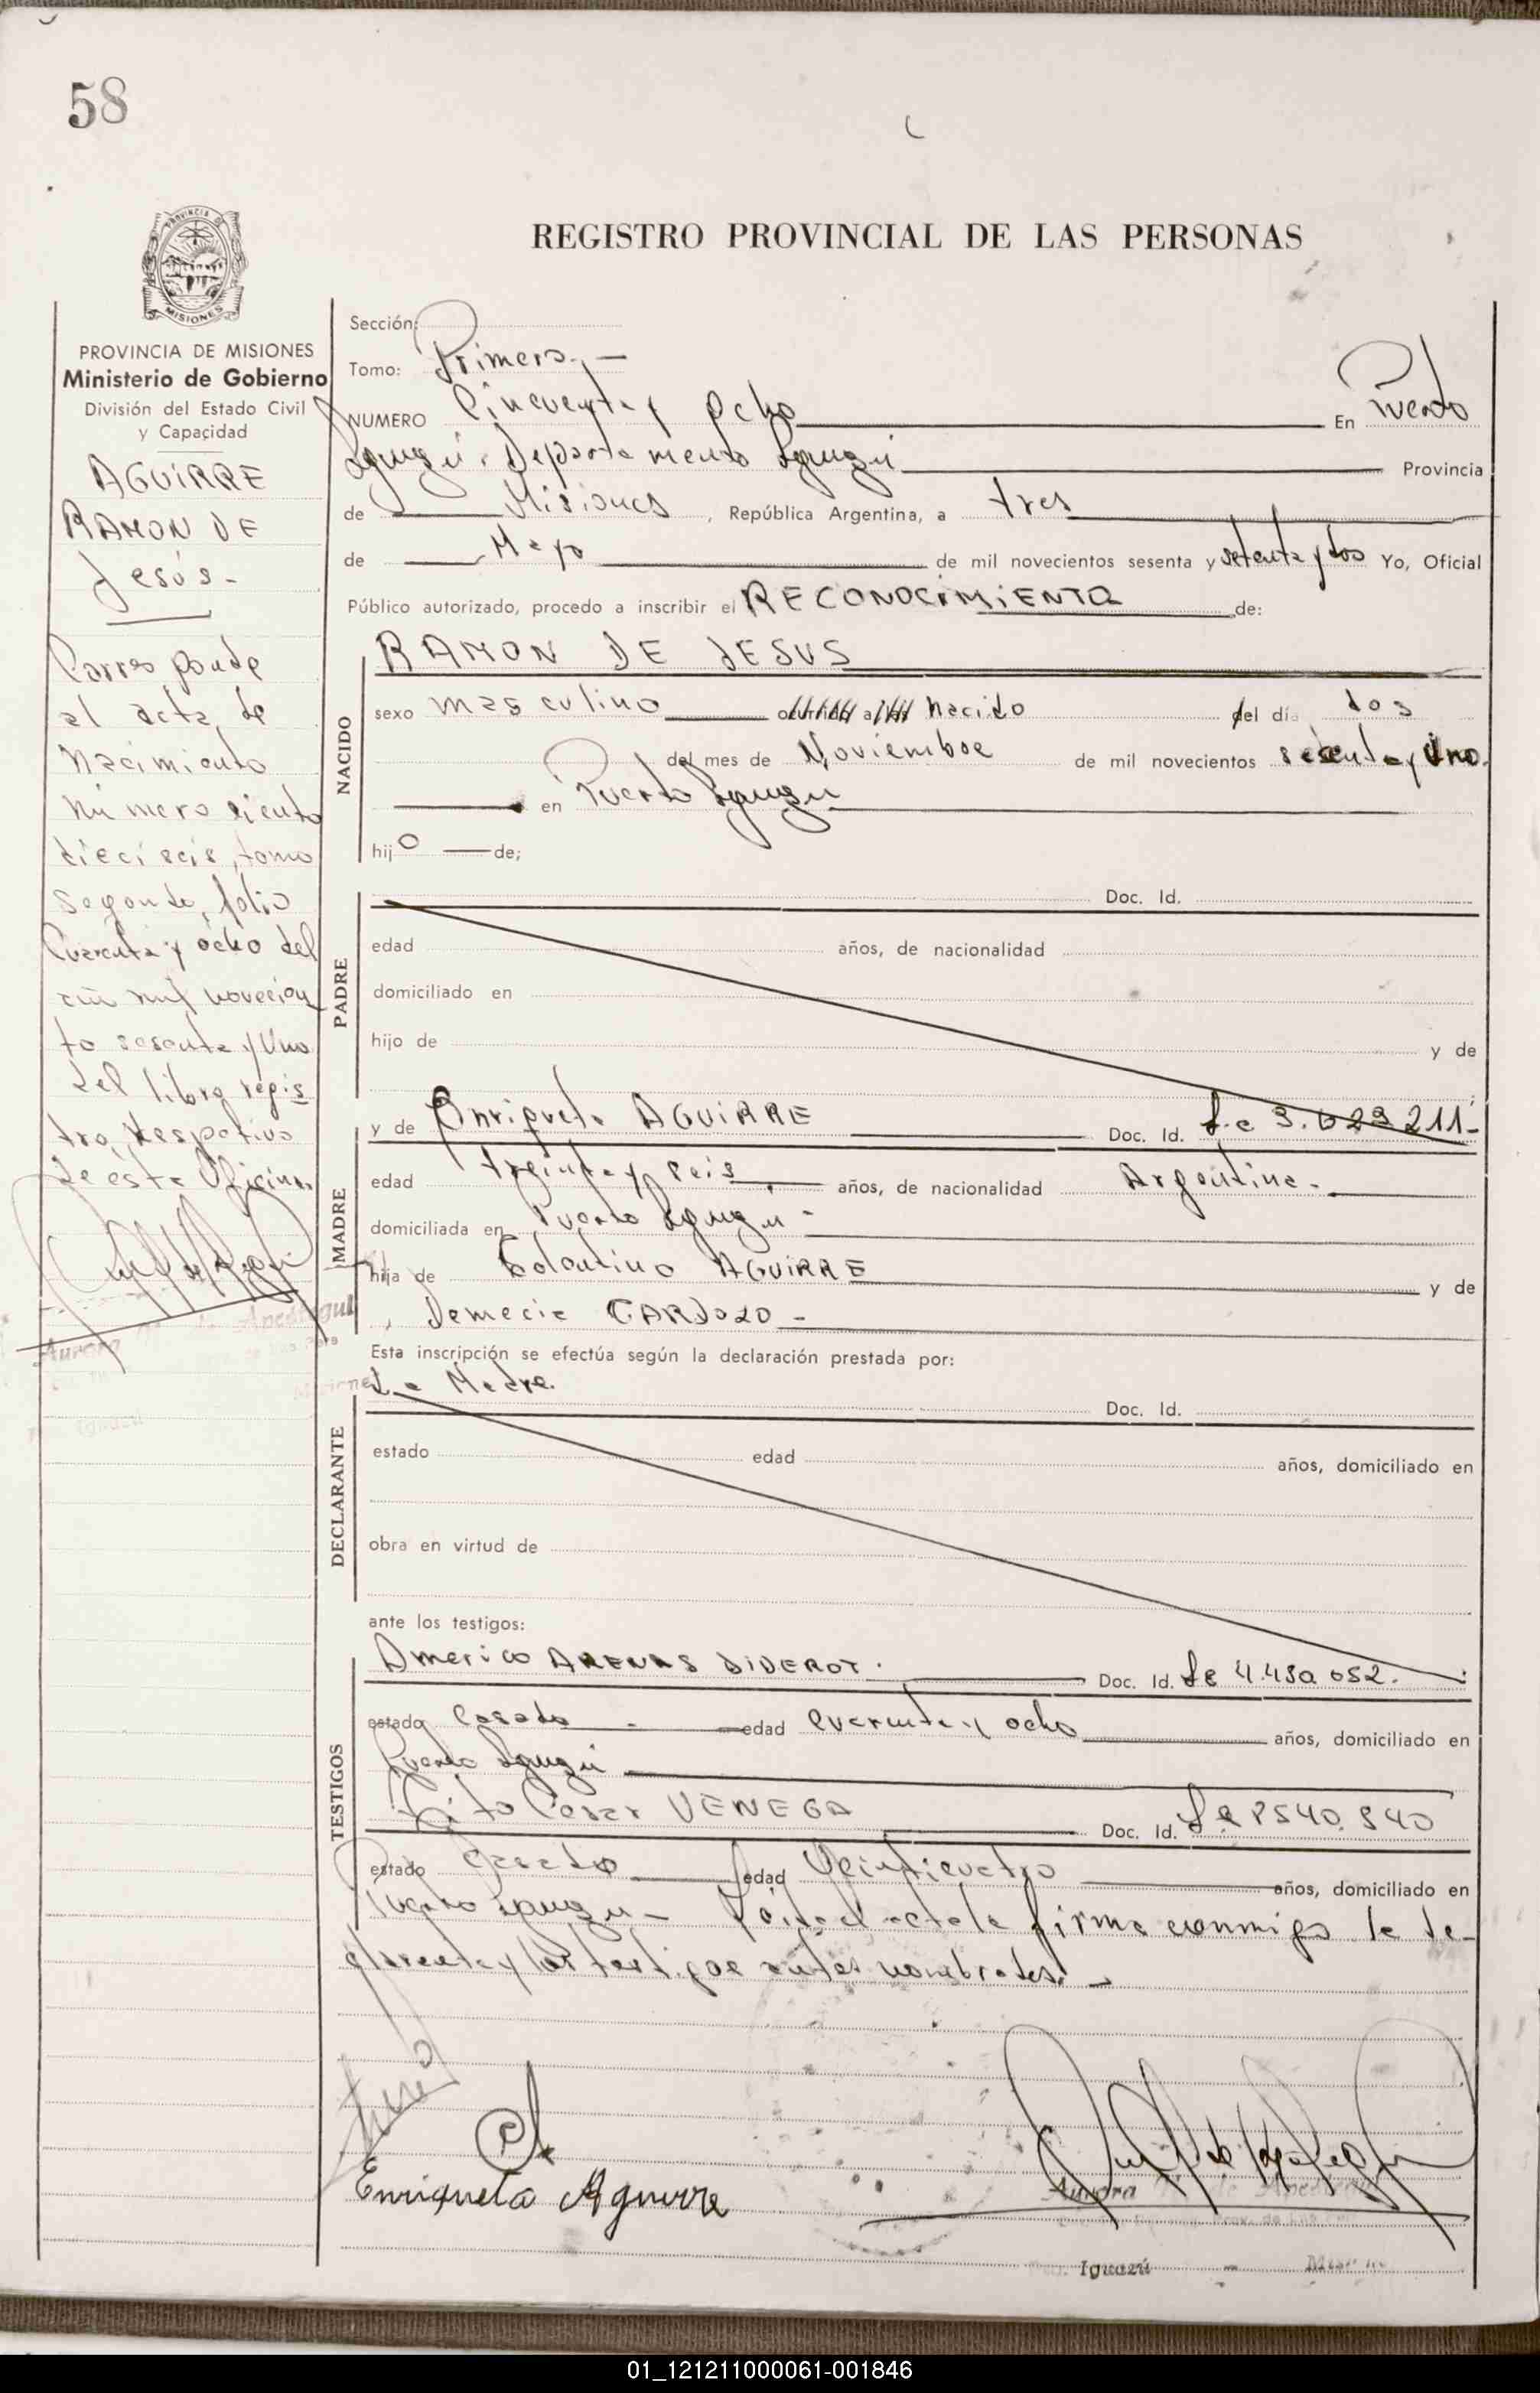 58
PROVINCIA DE
MISIONES
REGISTRO PROVINCIAL DE LAS PERSONAS
PROVINCIA DE MISIONES
Ministerio de Gobierno
División del Estado Civil
y Capacidad
AGUIRRE
RAMON DE
Jesús-
Corresponde
al acta de
nacimiento
número ciento
dieciseis, tomo
segundo, folio
Cuarenta y ocho del
mil novecien
to sesenta y Uno
del libro regis
tro, respetivo
de esta Oficina
Aurora
Sección:
Tomo: Primero.-
NUMERO Cincuenta y Ocho En Puerto
Iguazú, Departamento Iguazú Provincia
de Misiones, República Argentina, a tres
de Mayo de mil novecientos sesenta y setenta y dos Yo, Oficial
Público autorizado, procedo a inscribir el RECONOCIMIENTO de:
NACIDO
RAMON DE JESUS
sexo masculino nacido del día dos
del mes de Noviembre de mil novecientos sesenta y Uno.
en Puerto Iguazu
hijo de;
PADRE
Doc. Id.
edad años, de nacionalidad
domiciliado en
hijo de y de
MADRE
y de Enriqueta AGUIRRE Doc. Id. L.c 3.629 211-
edad treinta y seis años, de nacionalidad Argentina.-
domiciliada en Puerto Iguazu-
hija de AGUIRRE y de
Demecia CARDOZO-
Esta inscripción se efectúa según la declaración prestada por:
La Madre.
DECLARANTE
Doc. Id.
estado edad años, domiciliado en
obra en virtud de
ante los testigos:
TESTIGOS
Americo ARENAS DIDEROT. Doc. Id. Le 4.430.052.
estado Casado edad cuarenta y ocho años, domiciliado en
Puerto Iguazú
Tito Cesar VENEGA Doc. Id. Le 8540.840
estado Casado edad Veinticuatro años, domiciliado en
Puerto Iguazu- Leida el acta la firma conmigo la de-
clarante y los testigos antes nombrados.-
Enriqueta Aguirre
Aurora
Iguazú - Misiones
01_121211000061-001846